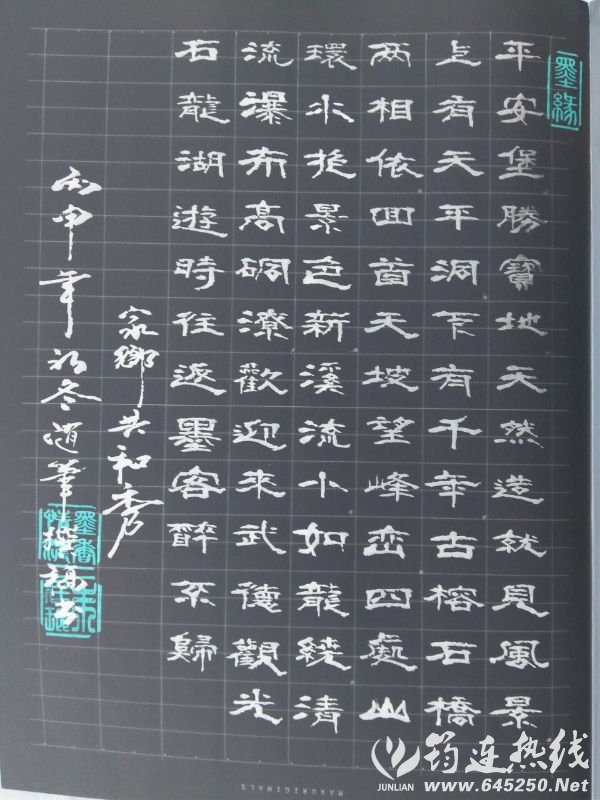 墨緣
平安堡勝寶地天然造就見風景
上有天平洞下有千年古榕石橋
两相依回首天坡望峰峦四處山
環水抱景色新溪流小如龍繞清
流瀑布高硐潦歡迎來武德觀光
石龍湖遊時往逐墨客醉不歸
家鄉共和秀
丙申年初冬随筆
MAXORIGINALS
筠连热线
JUNLIAN
www.645250.Net